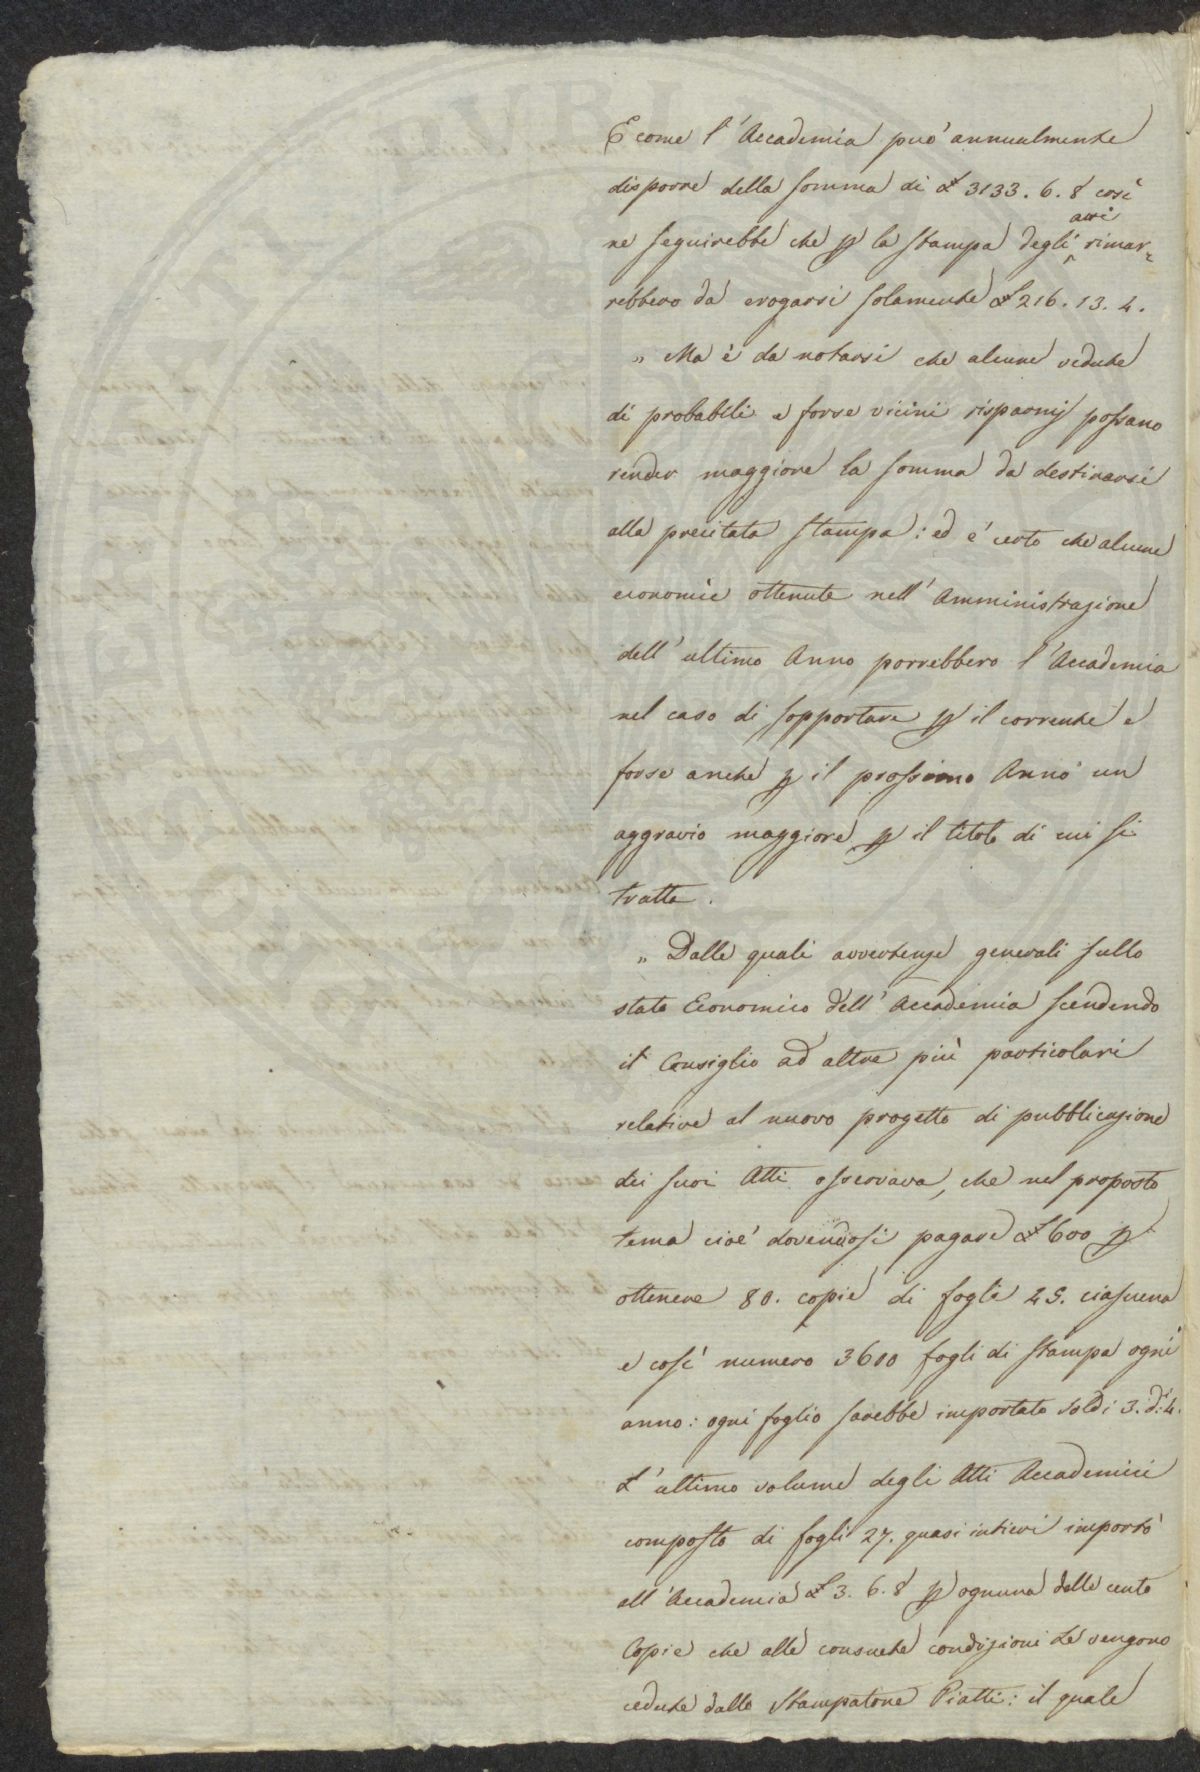 E come l'Accademia può annualmente
disporre della somma di £ 3133. 6. 8 così
ne seguirebbe che p la stampa degli atti rimar-
rebbero da erogarsi solamente £ 216. 13. 4.
„ Ma è da notarsi che alcune vedute
di probabili e forse vicini risparmj possano
render maggiore la somma da destinarsi
alla precitata stampa: ed è certo che alcune
economie ottenute nell'Amministrazione
dell'ultimo Anno porrebbero l'Accademia
nel caso di sopportare p il corrente e
forse anche p il prossimo Anno un
aggravio maggiore p il titolo di cui si
tratta.
„ Dalle quali avvertenze generali sullo
stato Economico dell'Accademia scendendo
il Consiglio ad altre più particolari
relative al nuovo progetto di pubblicazione
dei suoi Atti osservava, che nel proposto
tema cioè dovendosi pagare £ 600 p
ottenere 80. copie di fogli 45. ciascuna
e così numero 3600 fogli di stampa ogni
anno: ogni foglio sarebbe importato soldi 3. d: 4.
L'ultimo volume degli Atti Accademici
composto di fogli 27. quasi intieri importò
all'Accademia £ 3. 6. 8 p ognuna delle cento
Copie che alle consuete condizioni Le vengono
cedute dallo Stampatore Piatti: il quale